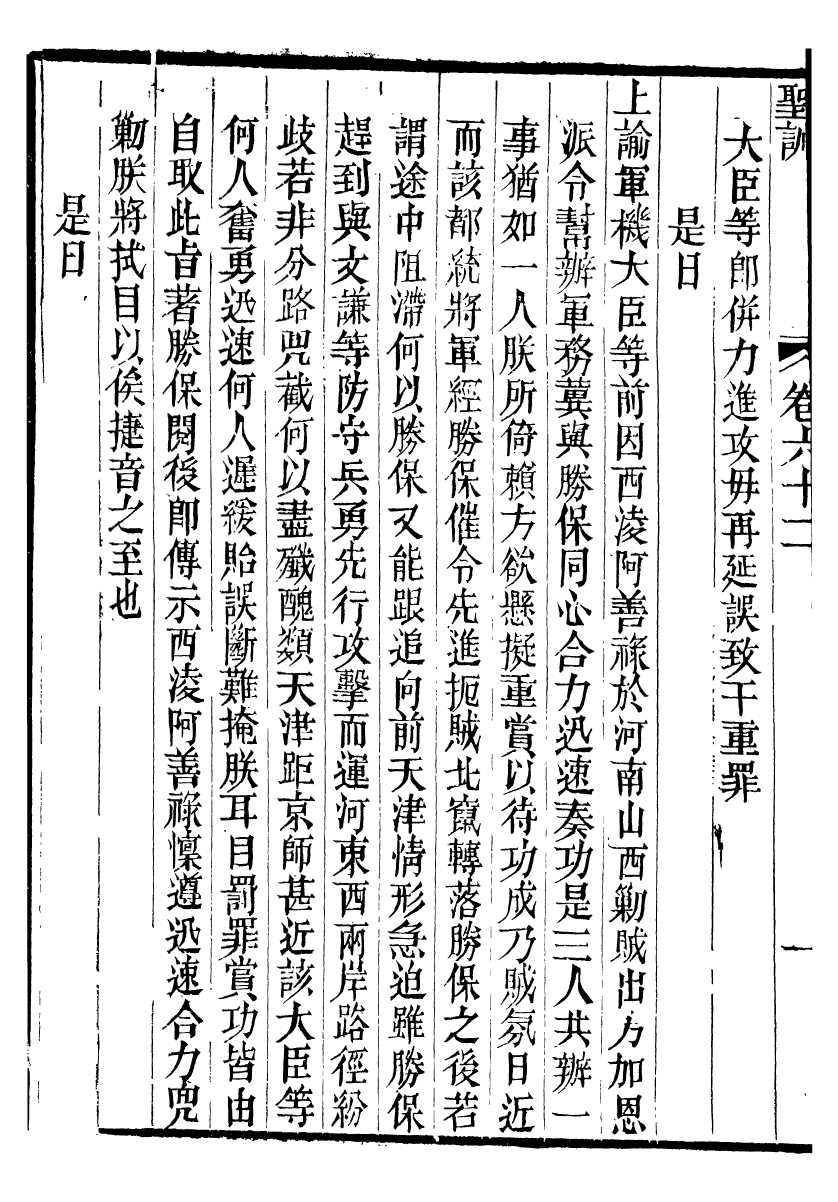 聖訓
卷六十二
一
大臣等卽併力進攻毋再延誤致干重罪
是日
上諭軍機大臣等前因西淩阿善祿於河南山西勦賊出力加恩
派令幫辦軍務冀與勝保同心合力迅速奏功是三人共辦一
事猶如一人朕所倚賴方欲懸擬重賞以待功成乃賊氛日近
而該都統將軍經勝保催令先進扼賊北竄轉落勝保之後若
謂途中阻滯何以勝保又能跟追向前天津情形急迫雖勝保
趕到與文謙等防守兵勇先行攻擊而運河東西兩岸路徑紛
歧若非分路兜截何以盡殲醜類天津距京師甚近該大臣等
何人奮勇迅速何人遲緩貽誤斷難掩朕耳目罰罪賞功皆由
自取此旨著勝保閱後卽傳示西淩阿善祿懍遵迅速合力兜
勦朕將拭目以俟捷音之至也
是日